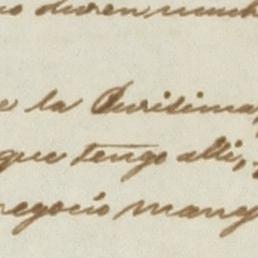 duren much
e la Purisima,
que tengo alli,
negocio mang